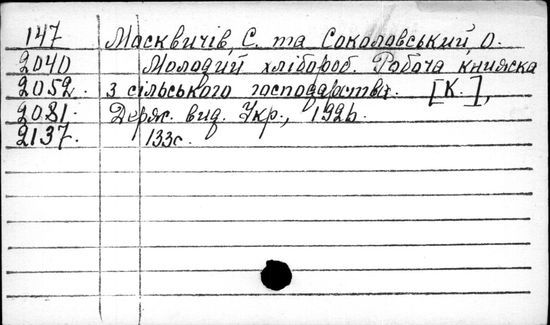 147 Масквичів, С. та Соколовський, О.
2040 Молодий хлібороб. Робоча книжка
2052. з сільського господарства. [К.],
2081. Держ. вид. Укр., 1926.
2137. 133с.